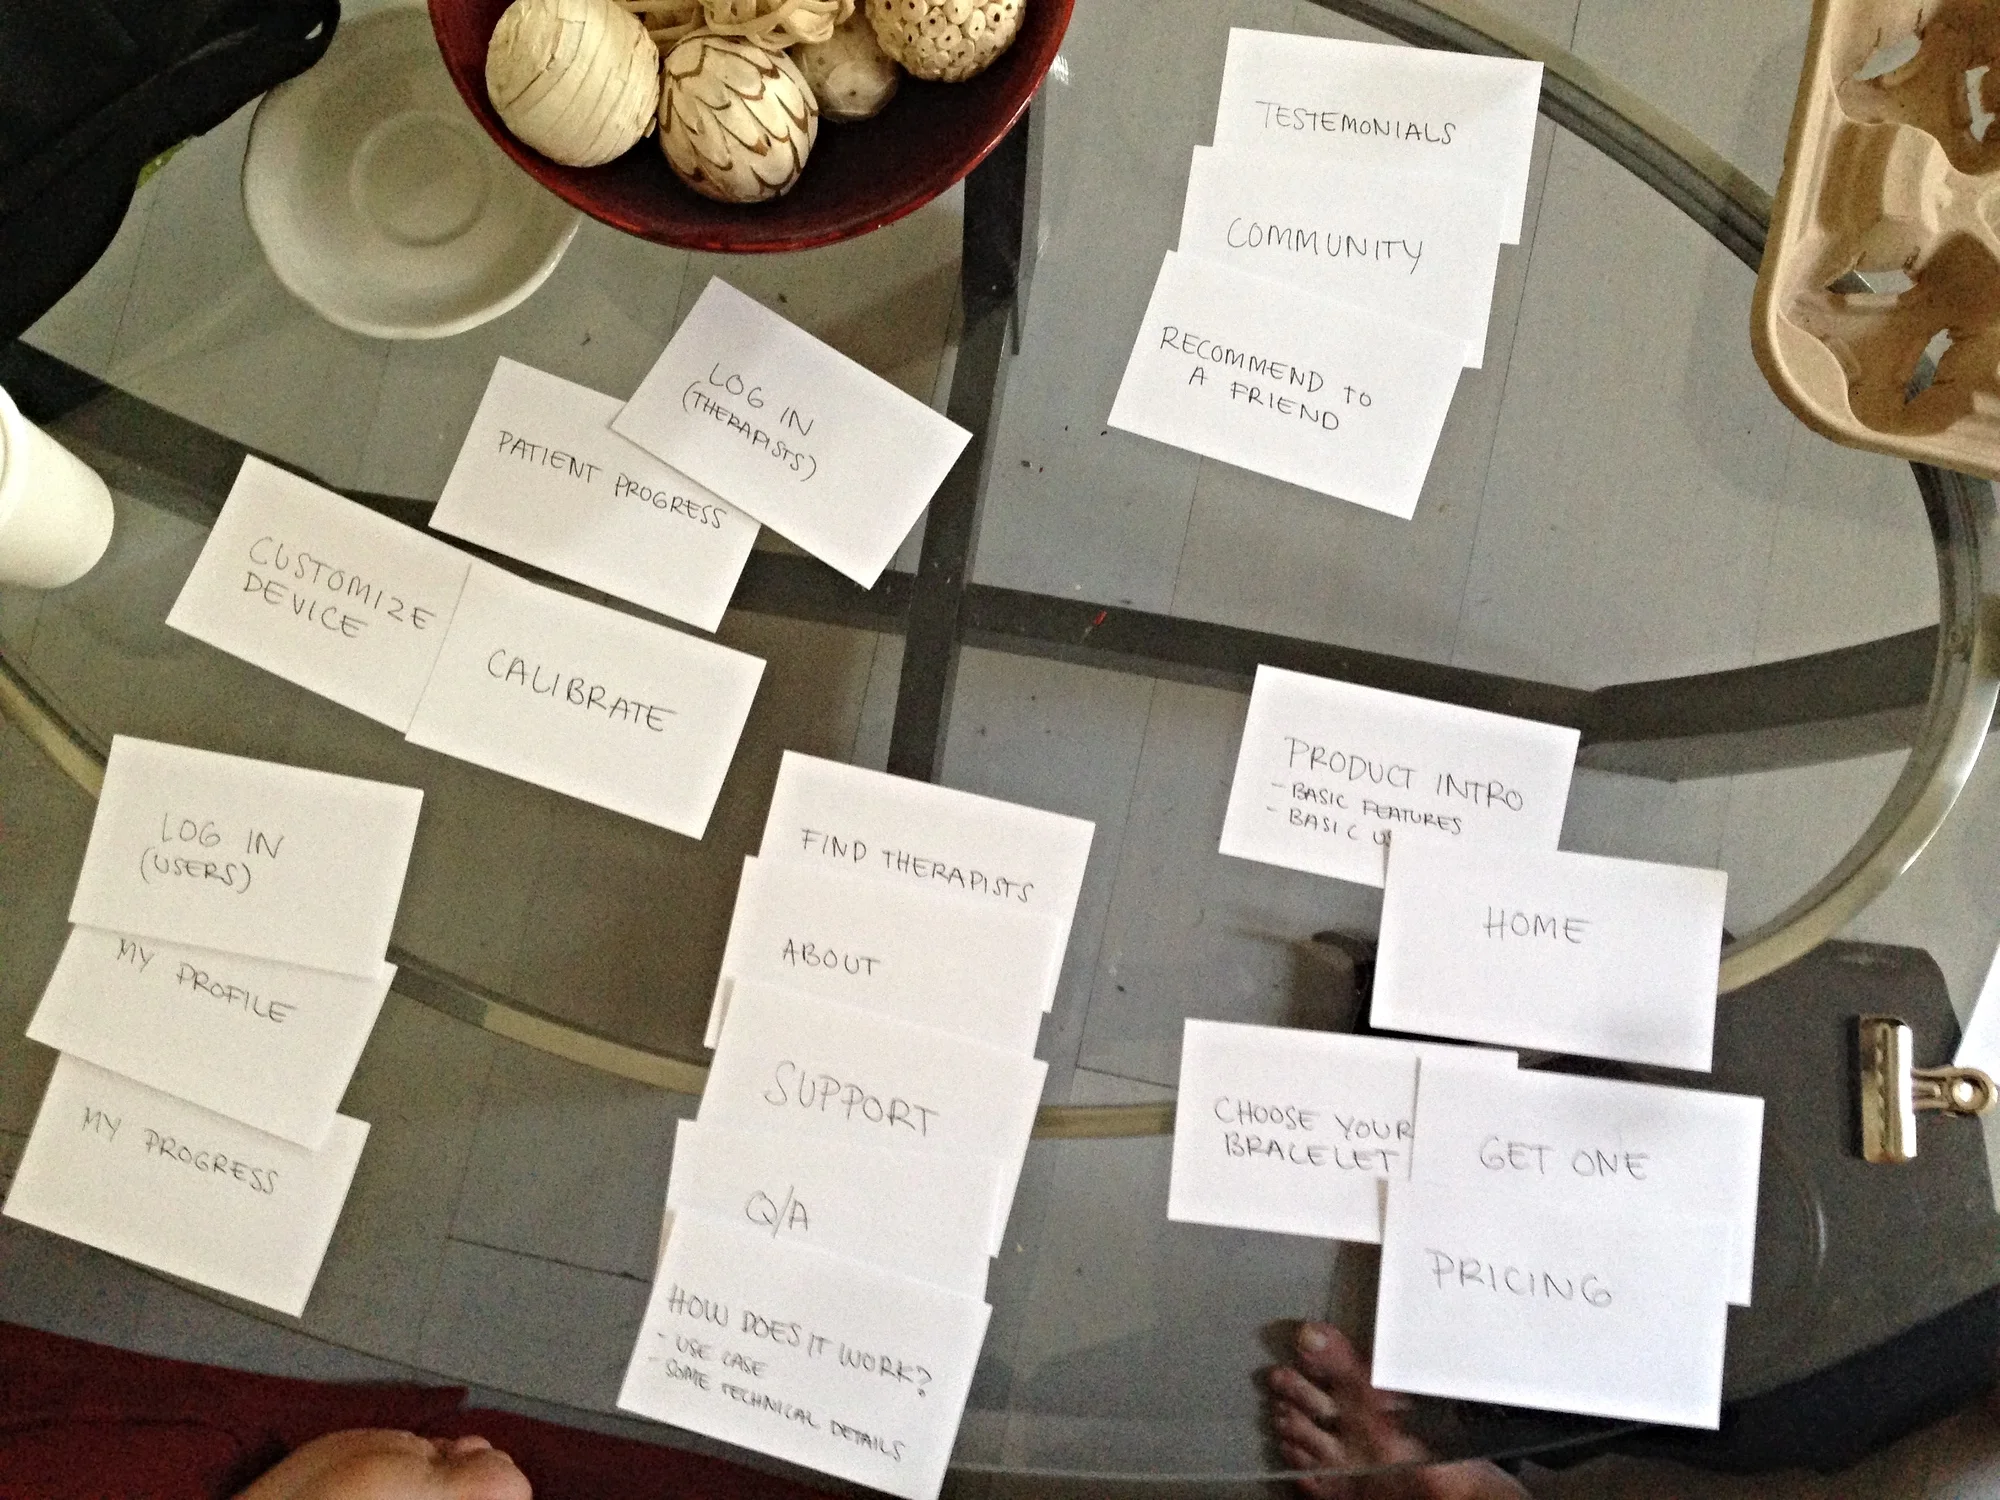 TESTEMONIALS
COMMUNITY
RECOMMEND TO
A FRIEND
LOG IN
(THERAPISTS)
PATIENT PROGRESS
CUSTOMIZE
DEVICE
CALIBRATE
LOG IN
(USERS)
MY PROFILE
MY PROGRESS
FIND THERAPISTS
ABOUT
SUPPORT
Q/A
HOW DOES IT WORK?
- USE CASE
- SOME TECHNICAL DETAILS
PRODUCT INTRO
- BASIC FEATURES
- BASIC
HOME
CHOOSE YOUR
BRACELET
GET ONE
PRICING